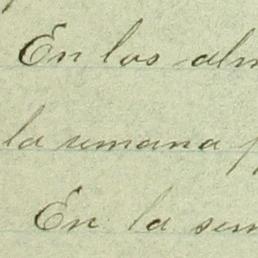 En los alm
la semana p
En la sem